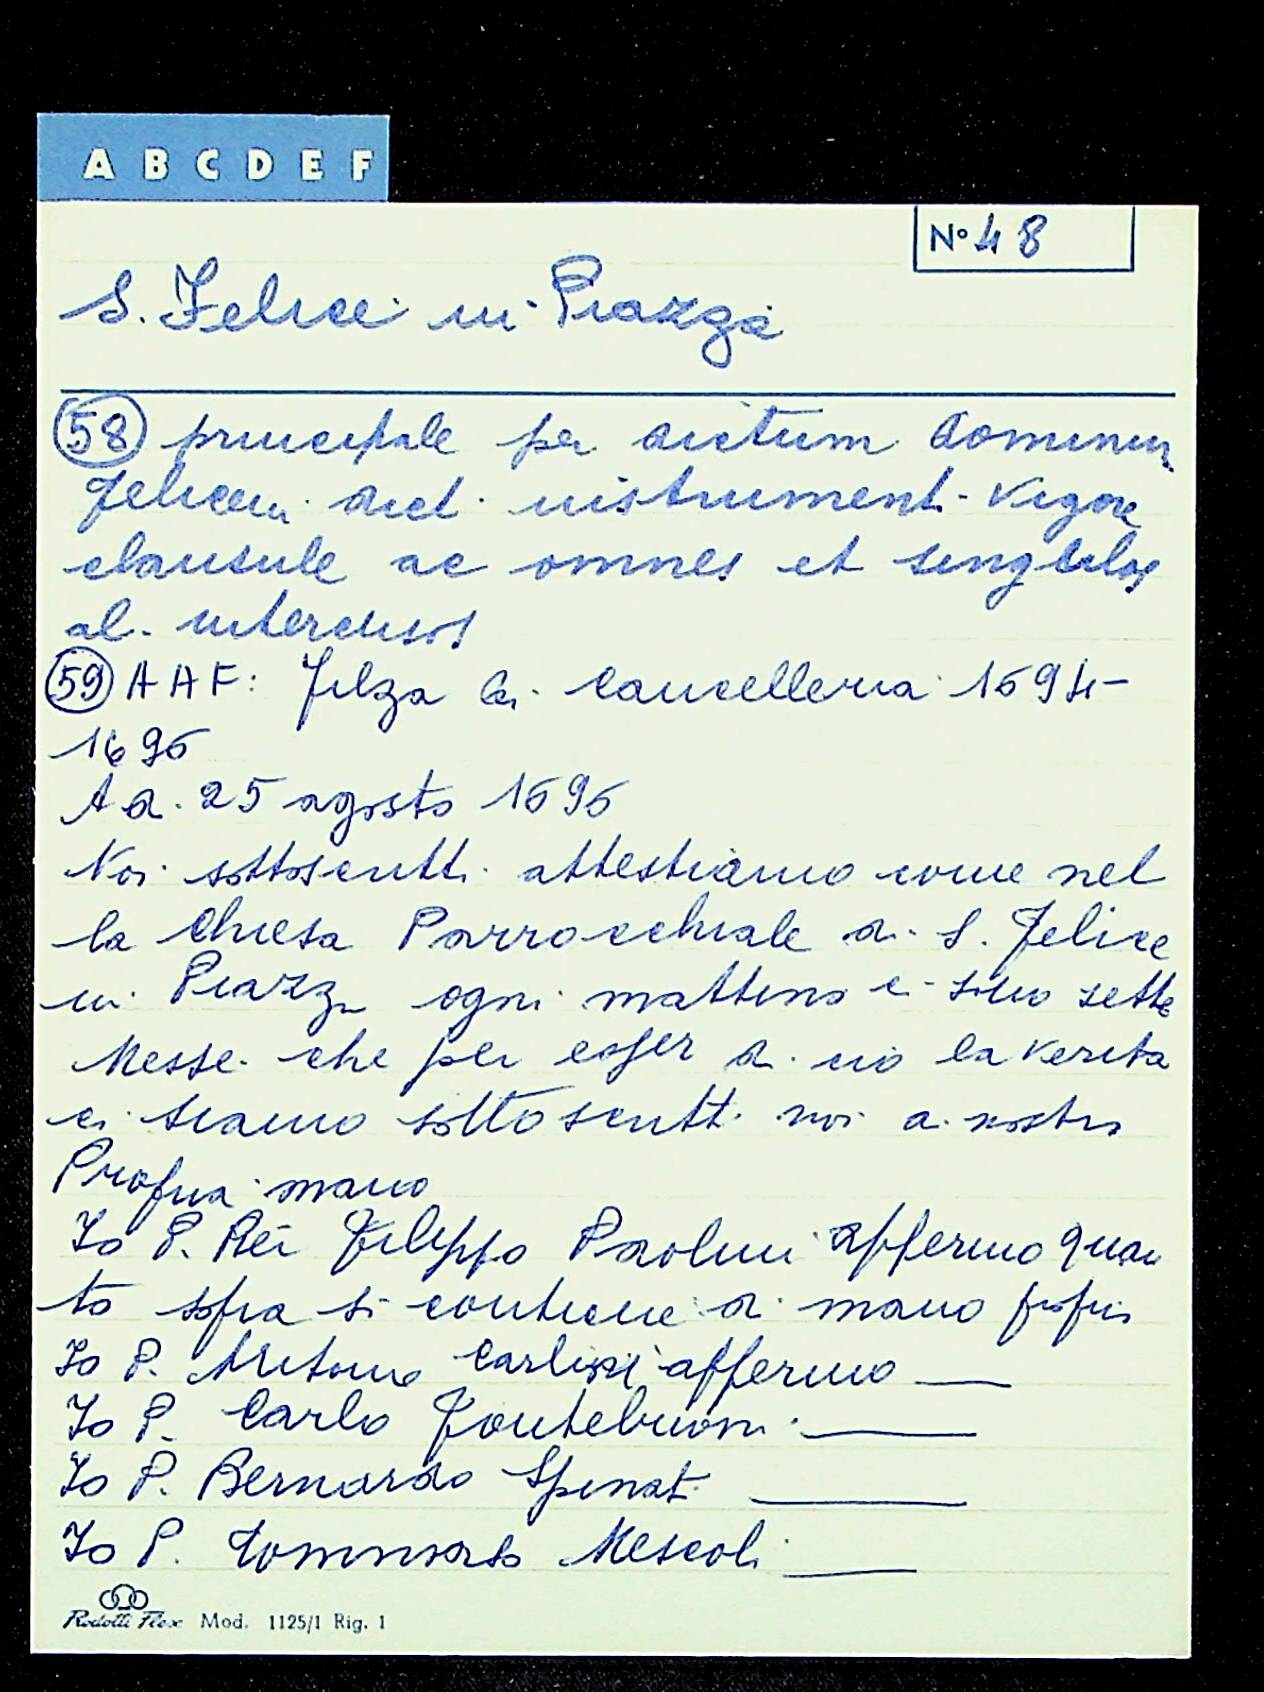 A B C D E F
N° 48
S. Felice in Piazza
58 principale per dictum Dominum
Felicem dict. instrument. vigore
clausule ac omnes et singulos
al.
59 AAF: Filza di Cancelleria 1694-
1696
A di 25 agosto 1696
Noi sottoscritti attestiamo come nel
la Chiesa Parrocchiale di S. Felice
in Piazza ogni mattino ci sono sette
Messe che per esser di ciò la verita
ci siamo sottoscritti noi di nostra
Propria mano
Io P. Filippo Paolini affermo quan
to sopra si contiene di mano propria
Io P. Antonio Carlini affermo
Io P. Carlo Fontebuoni
Io P. Bernardo Spinati
Io P. Tommaso Mescoli
Rodolli Flex Mod. 1125/1 Rig. 1